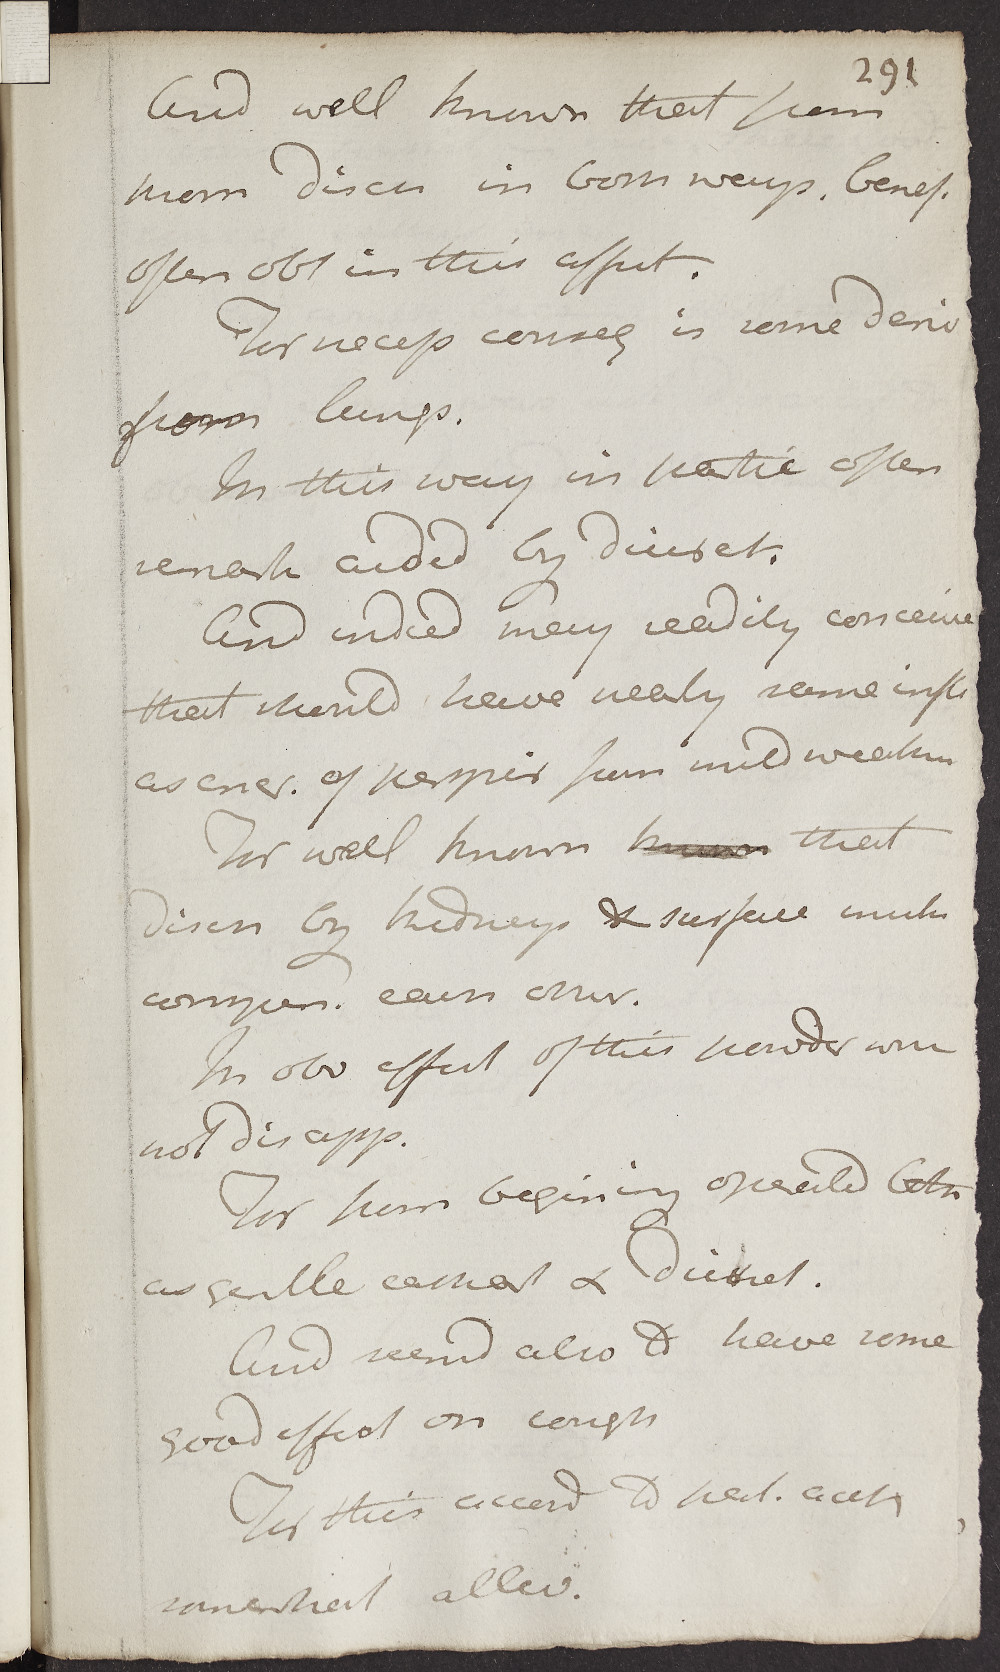 291
And well known that from
morn disch in both ways. benef.
often obt in this affect.
For necess conseq is some deriv
from lungs.
In this way in partic often
remark aided by diuret.
And indeed may readily conceive
that should have nearly same infl
as encr. of perspir from mild weather
For well known known that
disch by kidneys & surface much
compen. each other.
In obv effect of this powder were
not disapp.
For from begining operated both
as gentle cathart & Diuret.
And seem'd also to have some
good effect on cough
For this accord to pat. acct
somewhat allev.